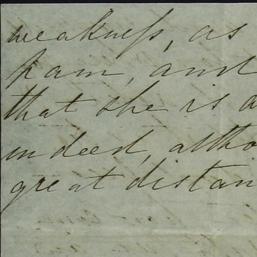 weakness, as
pain, and
that she is a
indeed, altho
great distan